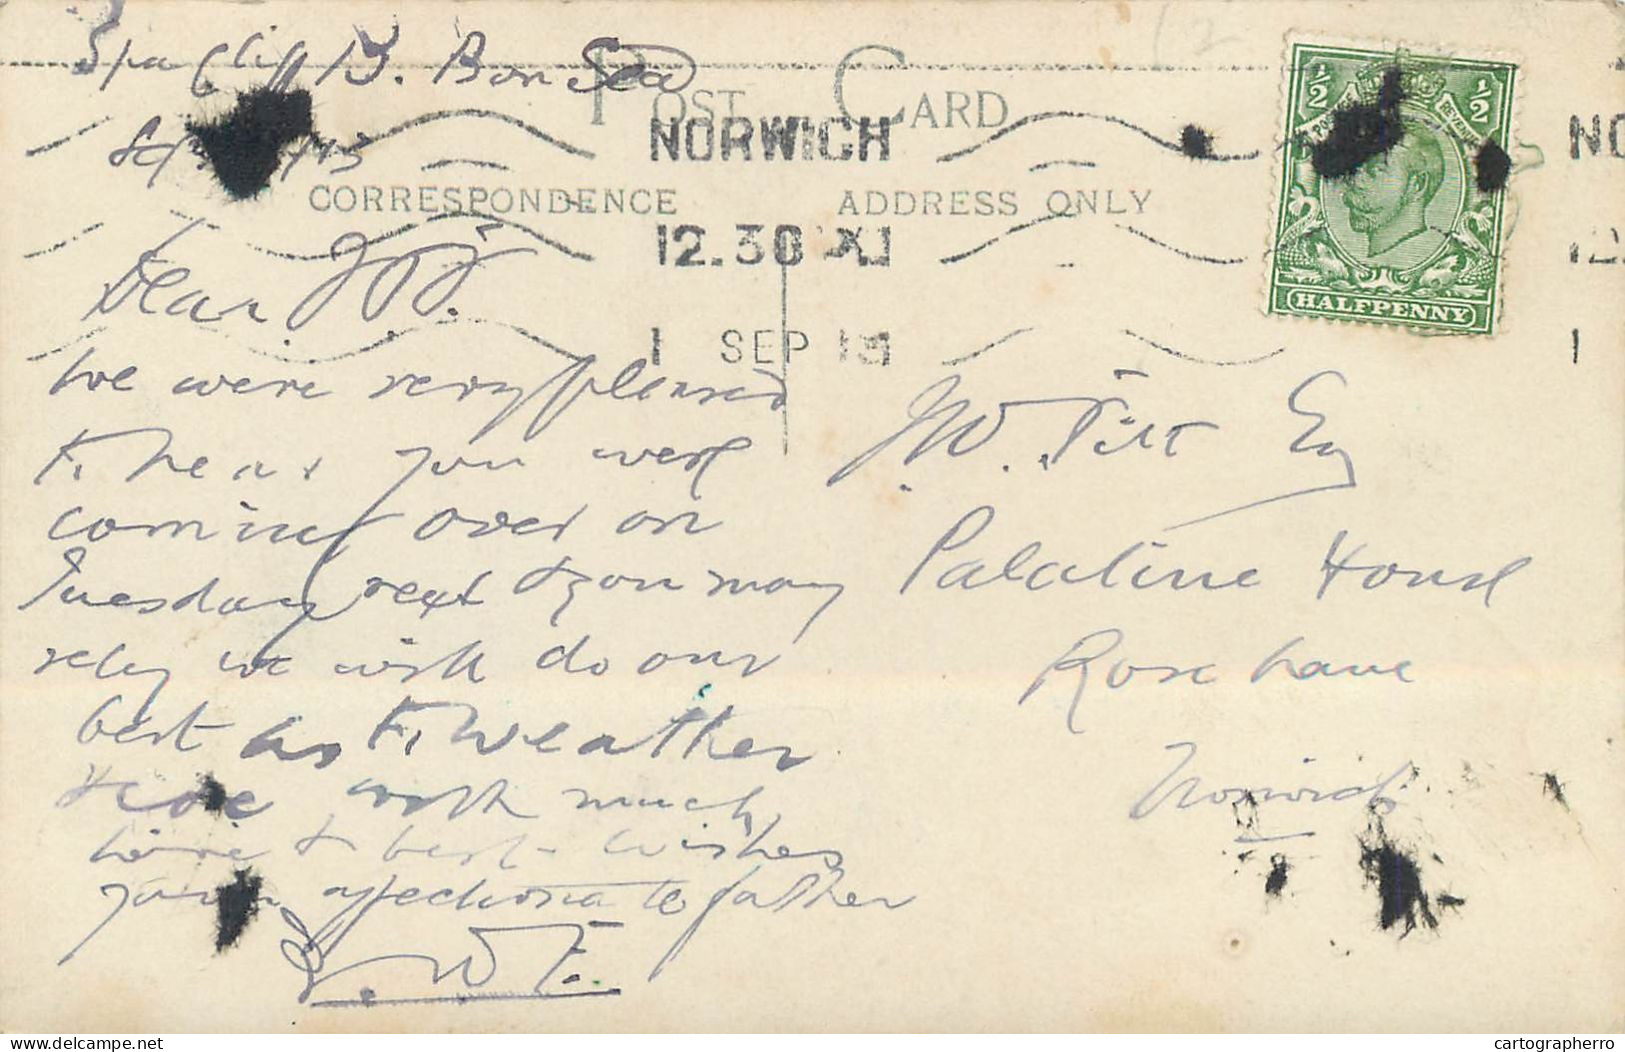 Spa Cliff B. Bon Sea
POST CARD
NORWICH
CORRESPONDENCE
ADDRESS ONLY
12.30
1 SEP 15
NO
12.
1
½ ½
POSTAGE REVENUE
HALFPENNY
Dear
We were very pleased
To hear you were
coming over on
Tuesday next & you may
rely we will do our
best as To weather
with much
love & best wishes
your affectionate father
J.W. Tilt Esq
Palatine House
Rose Lane
Norwich
cartographerro